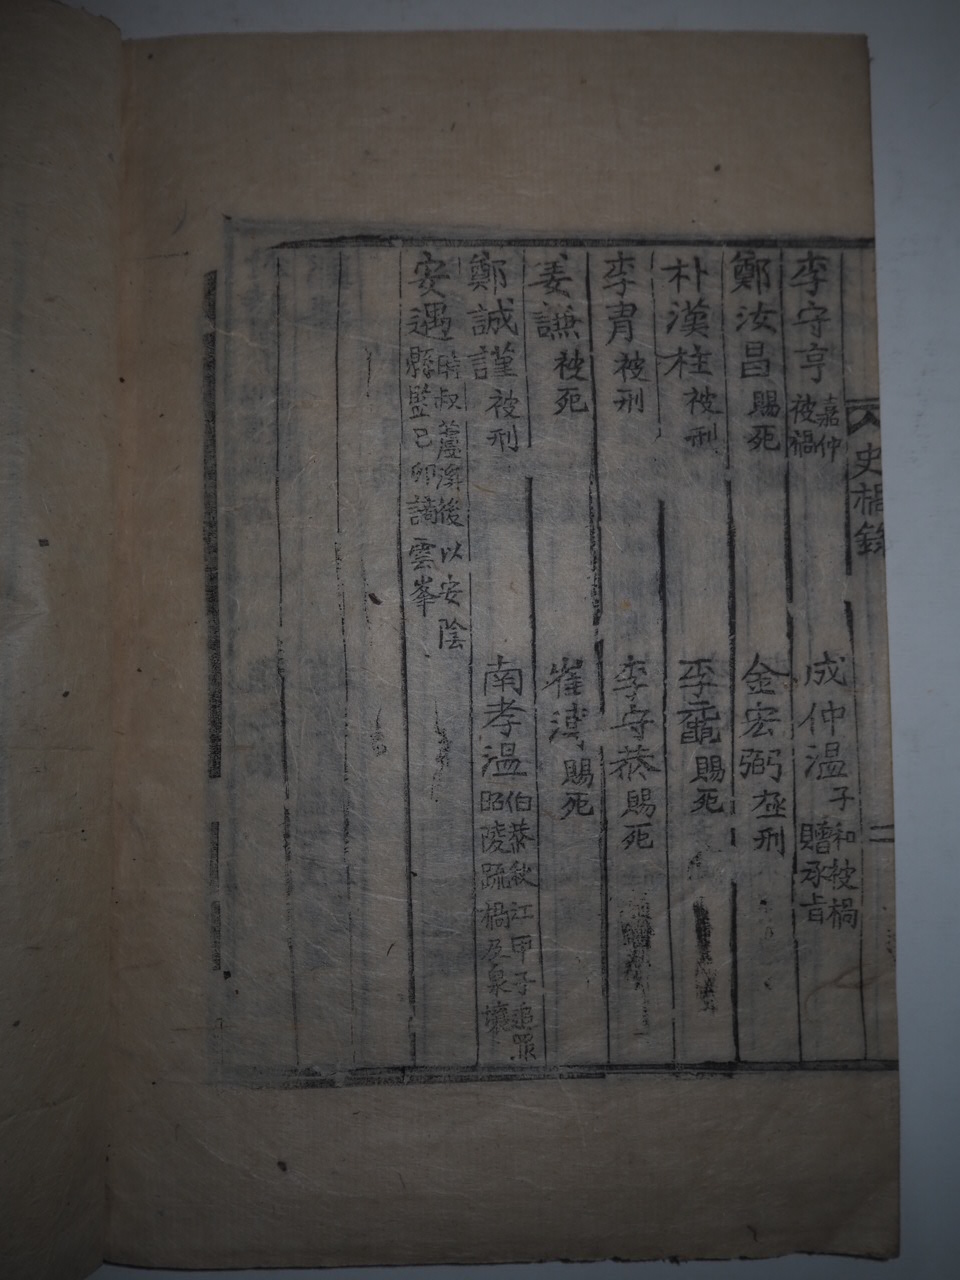 史禍錄
二
李守亨 嘉仲被禍
成仲溫 子和被禍贈承旨
鄭汝昌 賜死
金宏弼 極刑
朴漢柱 被刑
李黿 賜死
李胄 被刑
李守恭 賜死
姜謙 被死
崔溥 賜死
鄭誠謹 被刑
南孝溫 伯恭秋江甲子追罪昭陵疏禍及泉壤
安遇 時叔蘆溪後以安陰縣監己卯謫雲峯